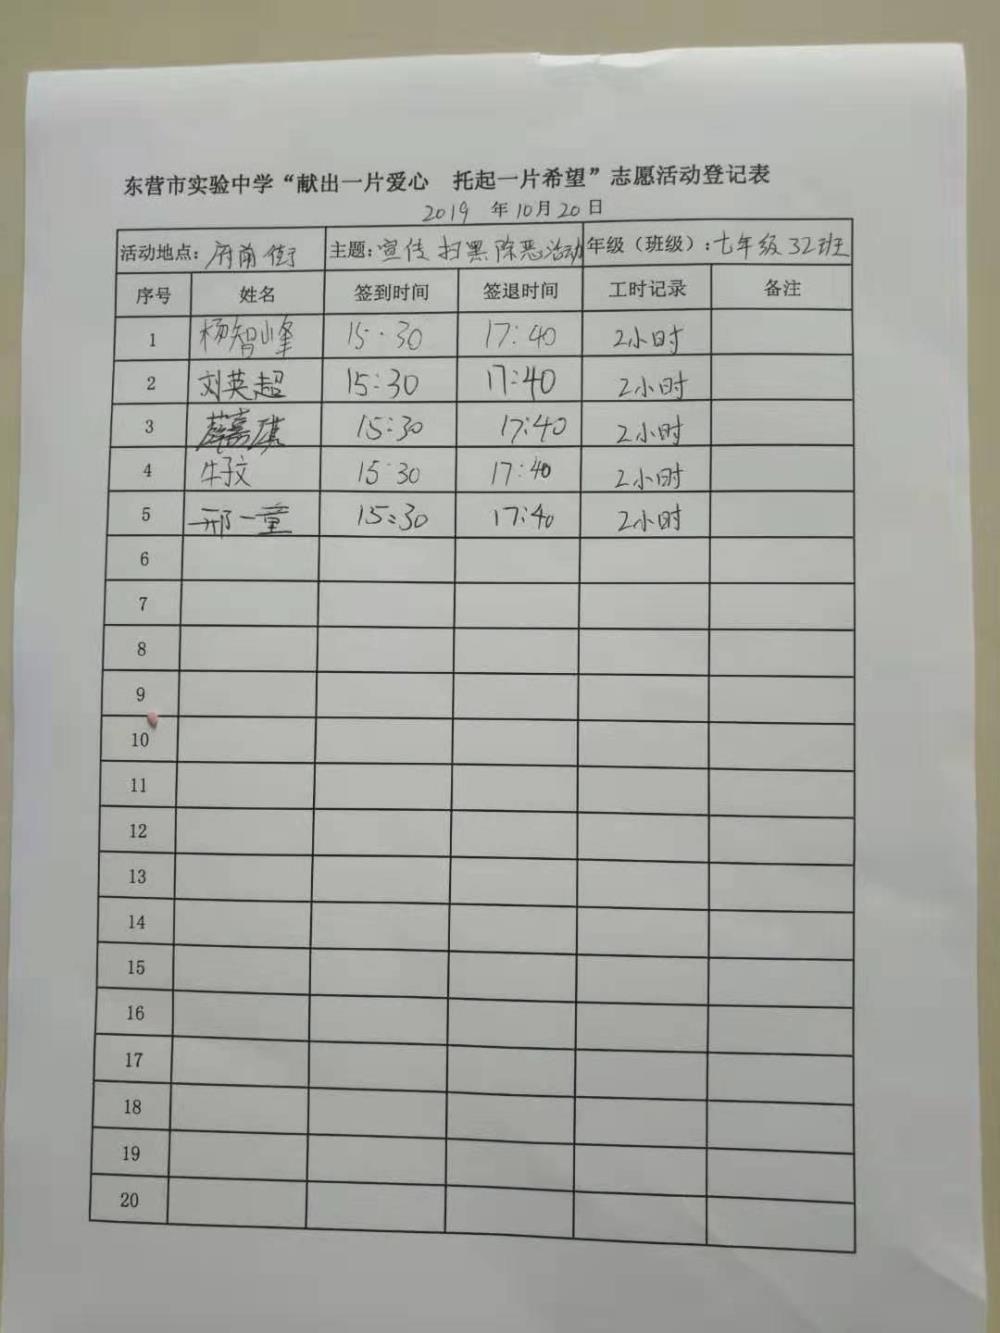 东营市实验中学“献出一片爱心 托起一片希望”志愿活动登记表
2019 年10月20日
活动地点：府前街 主题：宣传扫黑除恶活动 年级（班级）：七年级32班
序号 姓名 签到时间 签退时间 工时记录 备注
1 杨智峰 15:30 17:40 2小时
2 刘英超 15:30 17:40 2小时
3 薛嘉琪 15:30 17:40 2小时
4 牛子文 15:30 17:40 2小时
5 邢一童 15:30 17:40 2小时
6
7
8
9
10
11
12
13
14
15
16
17
18
19
20